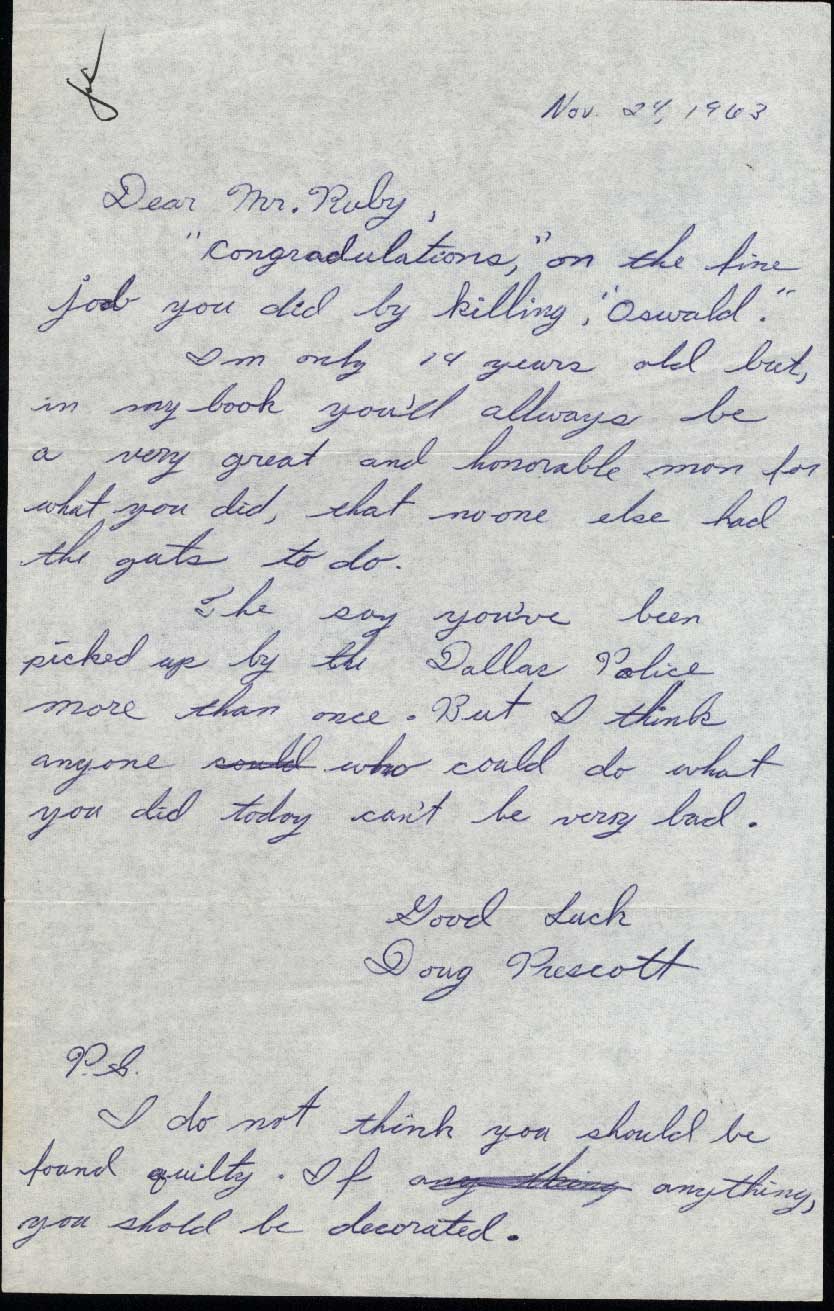 Nov. 24, 1963
Dear Mr. Ruby,
"Congradulations," on the fine
job you did by killing, "Oswald."
I'm only 14 years old but,
in my book you'll allways be
a very great and honorable man for
what you did, that no one else had
the guts to do.
The say you've been
picked up by the Dallas Police
more than once. But I think
anyone could who could do what
you did today can't be very bad.
Good Luck
Doug Prescott
P.S.
I do not think you should be
found guilty. If any thing anything,
you shold be decorated.